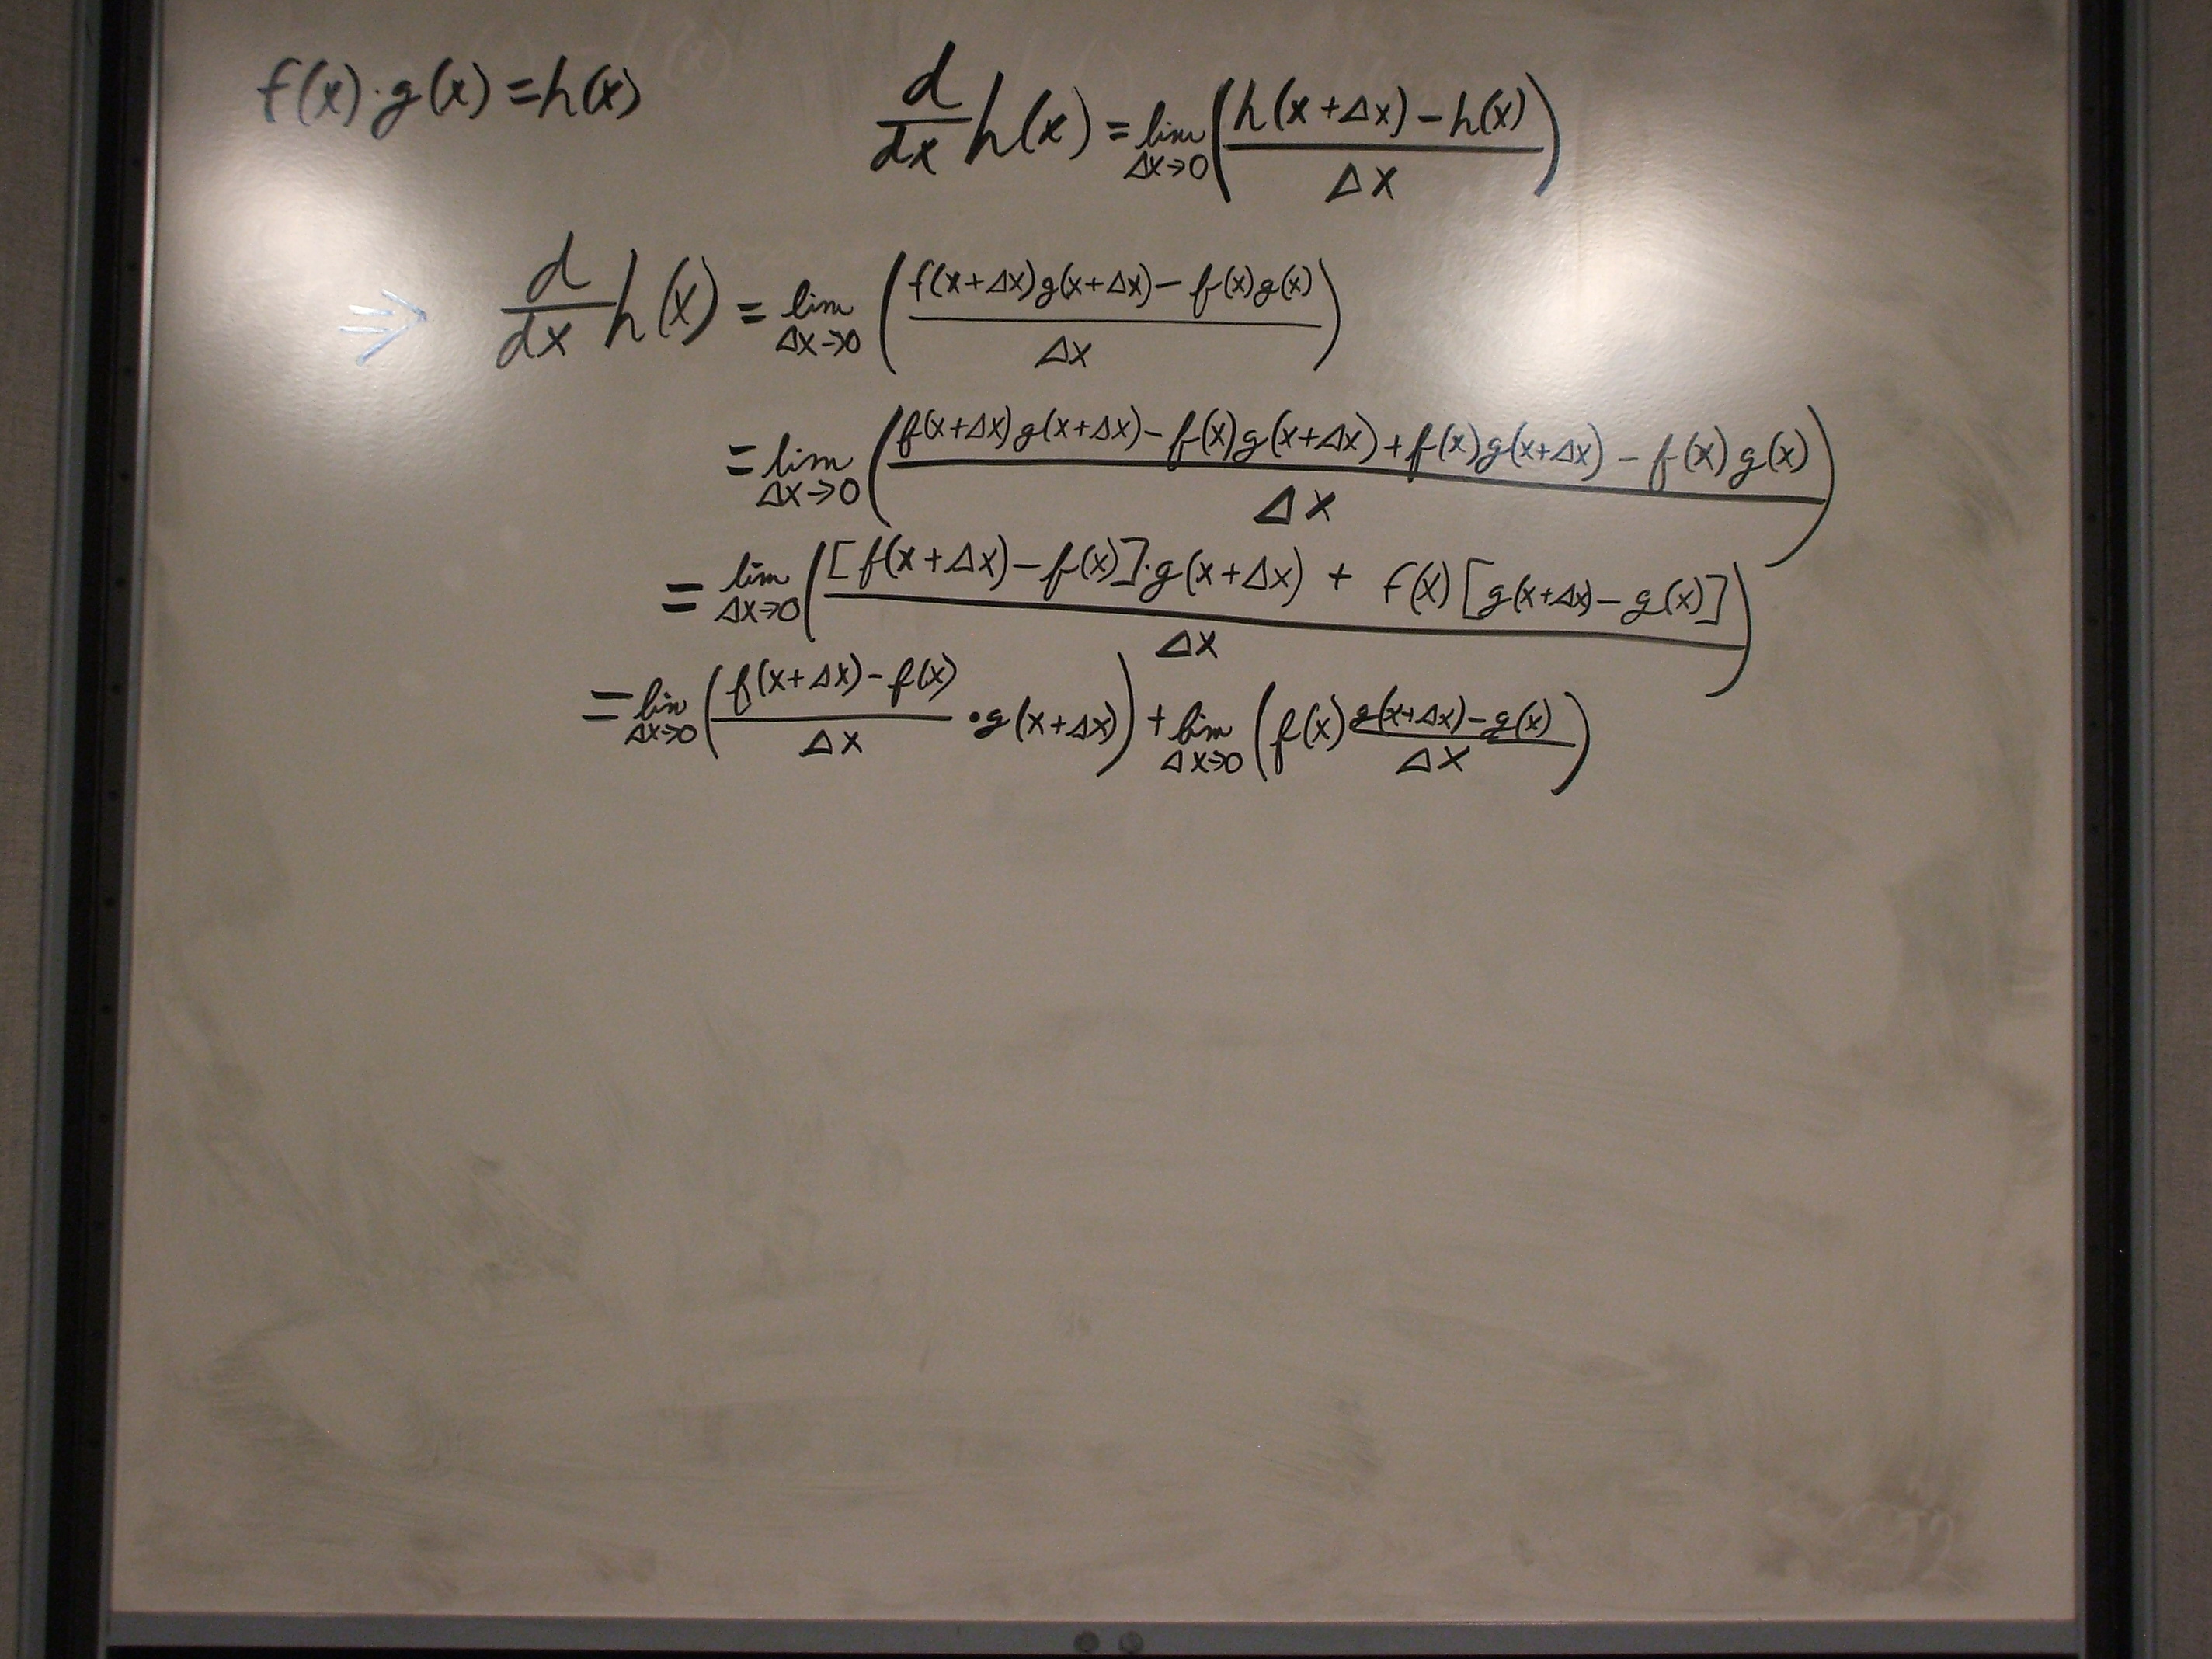 f(x)·g(x)=h(x)
d/dx h(x) = lim Δx→0 (h(x+Δx)-h(x) / Δx)
⇒ d/dx h(x) = lim Δx→0 (f(x+Δx)g(x+Δx)-f(x)g(x) / Δx)
= lim Δx→0 (f(x+Δx)g(x+Δx)-f(x)g(x+Δx)+f(x)g(x+Δx)-f(x)g(x) / Δx)
= lim Δx→0 ([f(x+Δx)-f(x)]·g(x+Δx) + f(x)[g(x+Δx)-g(x)] / Δx)
= lim Δx→0 (f(x+Δx)-f(x) / Δx •g(x+Δx)) + lim Δx→0 (f(x) g(x+Δx)-g(x) / Δx)